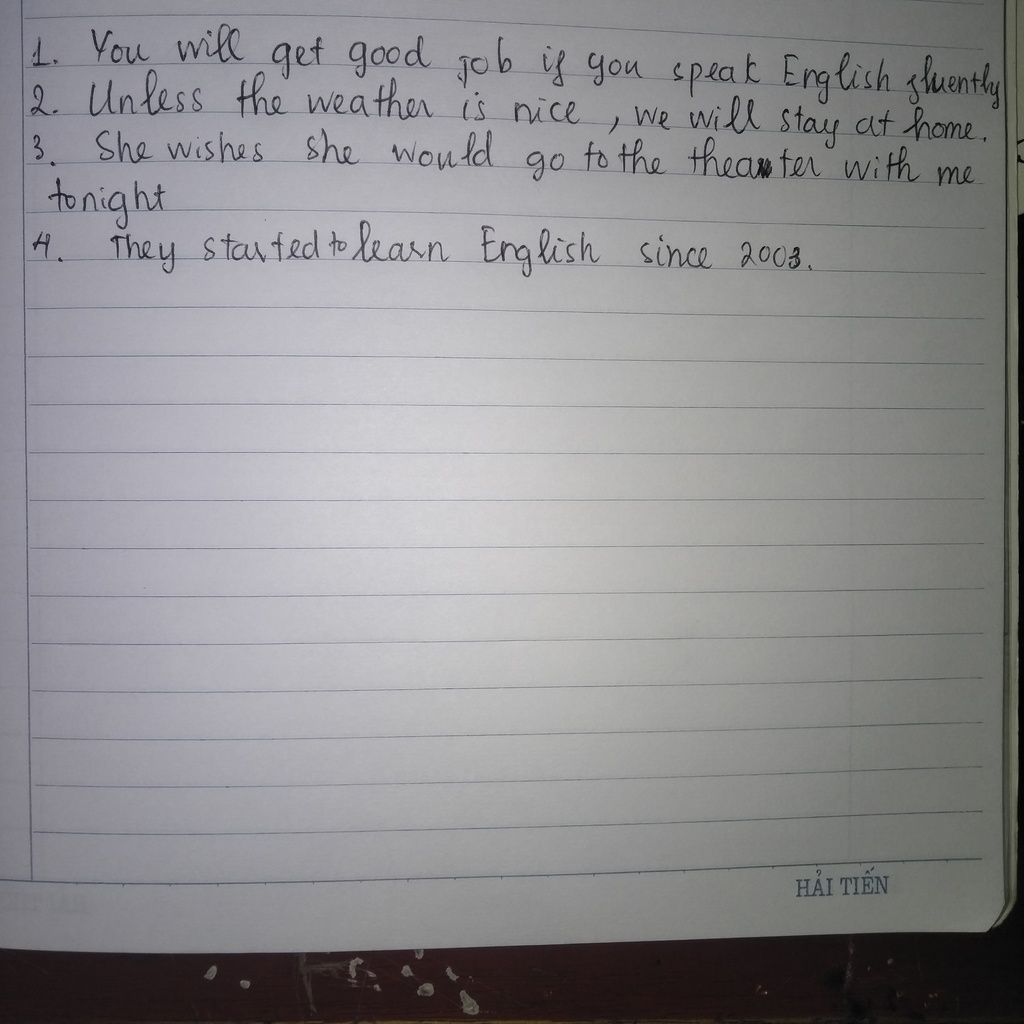 1. You will get good job if you speak English fluently
2. Unless the weather is nice, we will stay at home.
3. She wishes she would go to the theater with me
tonight
4. They started to learn English since 2003.
HẢI TIẾN